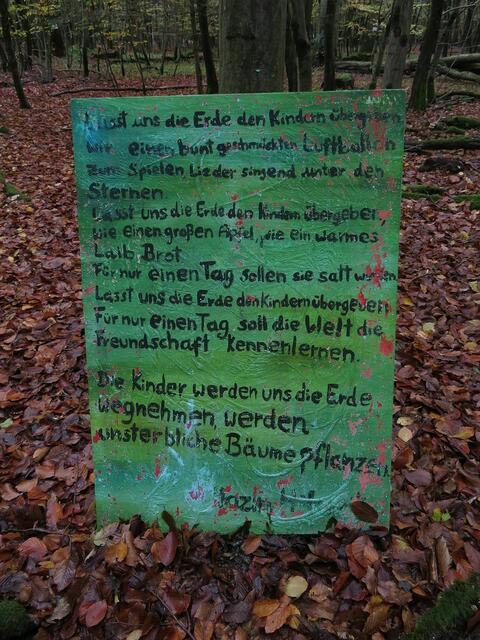 Lasst uns die Erde den Kindern übergeben
wie einen bunt geschmückten Luftballon
zum Spielen, Lieder singend unter den
Sternen.
Lasst uns die Erde den Kindern übergeben,
wie einen großen Apfel, wie ein warmes
Laib Brot.
Für nur einen Tag sollen sie satt werden
Lasst uns die Erde den Kindern übergeben
Für nur einen Tag soll die Welt die
Freundschaft kennenlernen.
Die Kinder werden uns die Erde
wegnehmen, werden
unsterbliche Bäume pflanzen